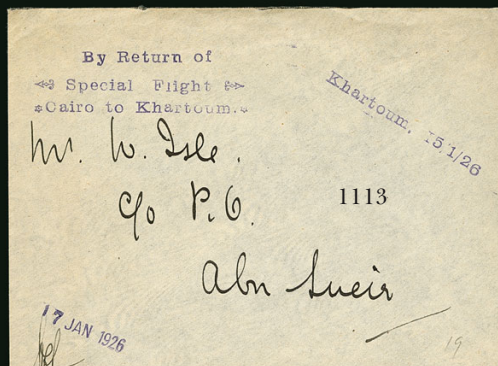 By Return of
Special Flight
Cairo to Khartoum.
Khartoum, 15/1/26
Mr. W. Isle.
c/o P.O.
1113
Abu Sueir
17 JAN 1926
19